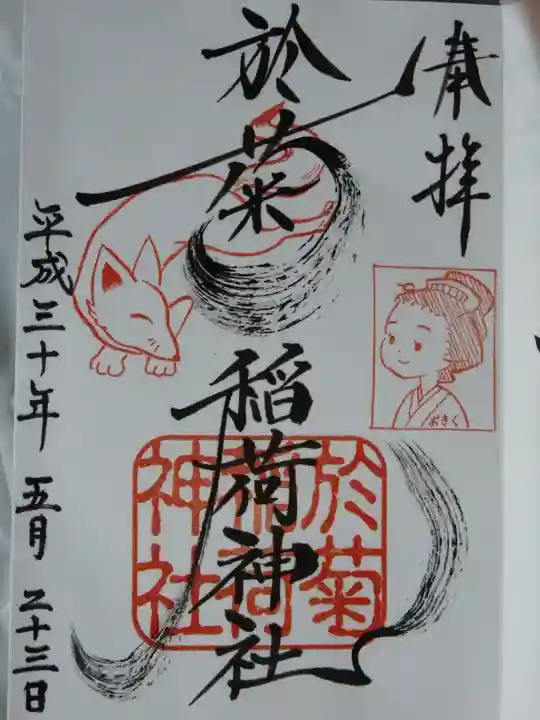 奉拝
於菊稲荷神社
おきく
於菊
稲荷
神社
平成三十年 五月 二十三日